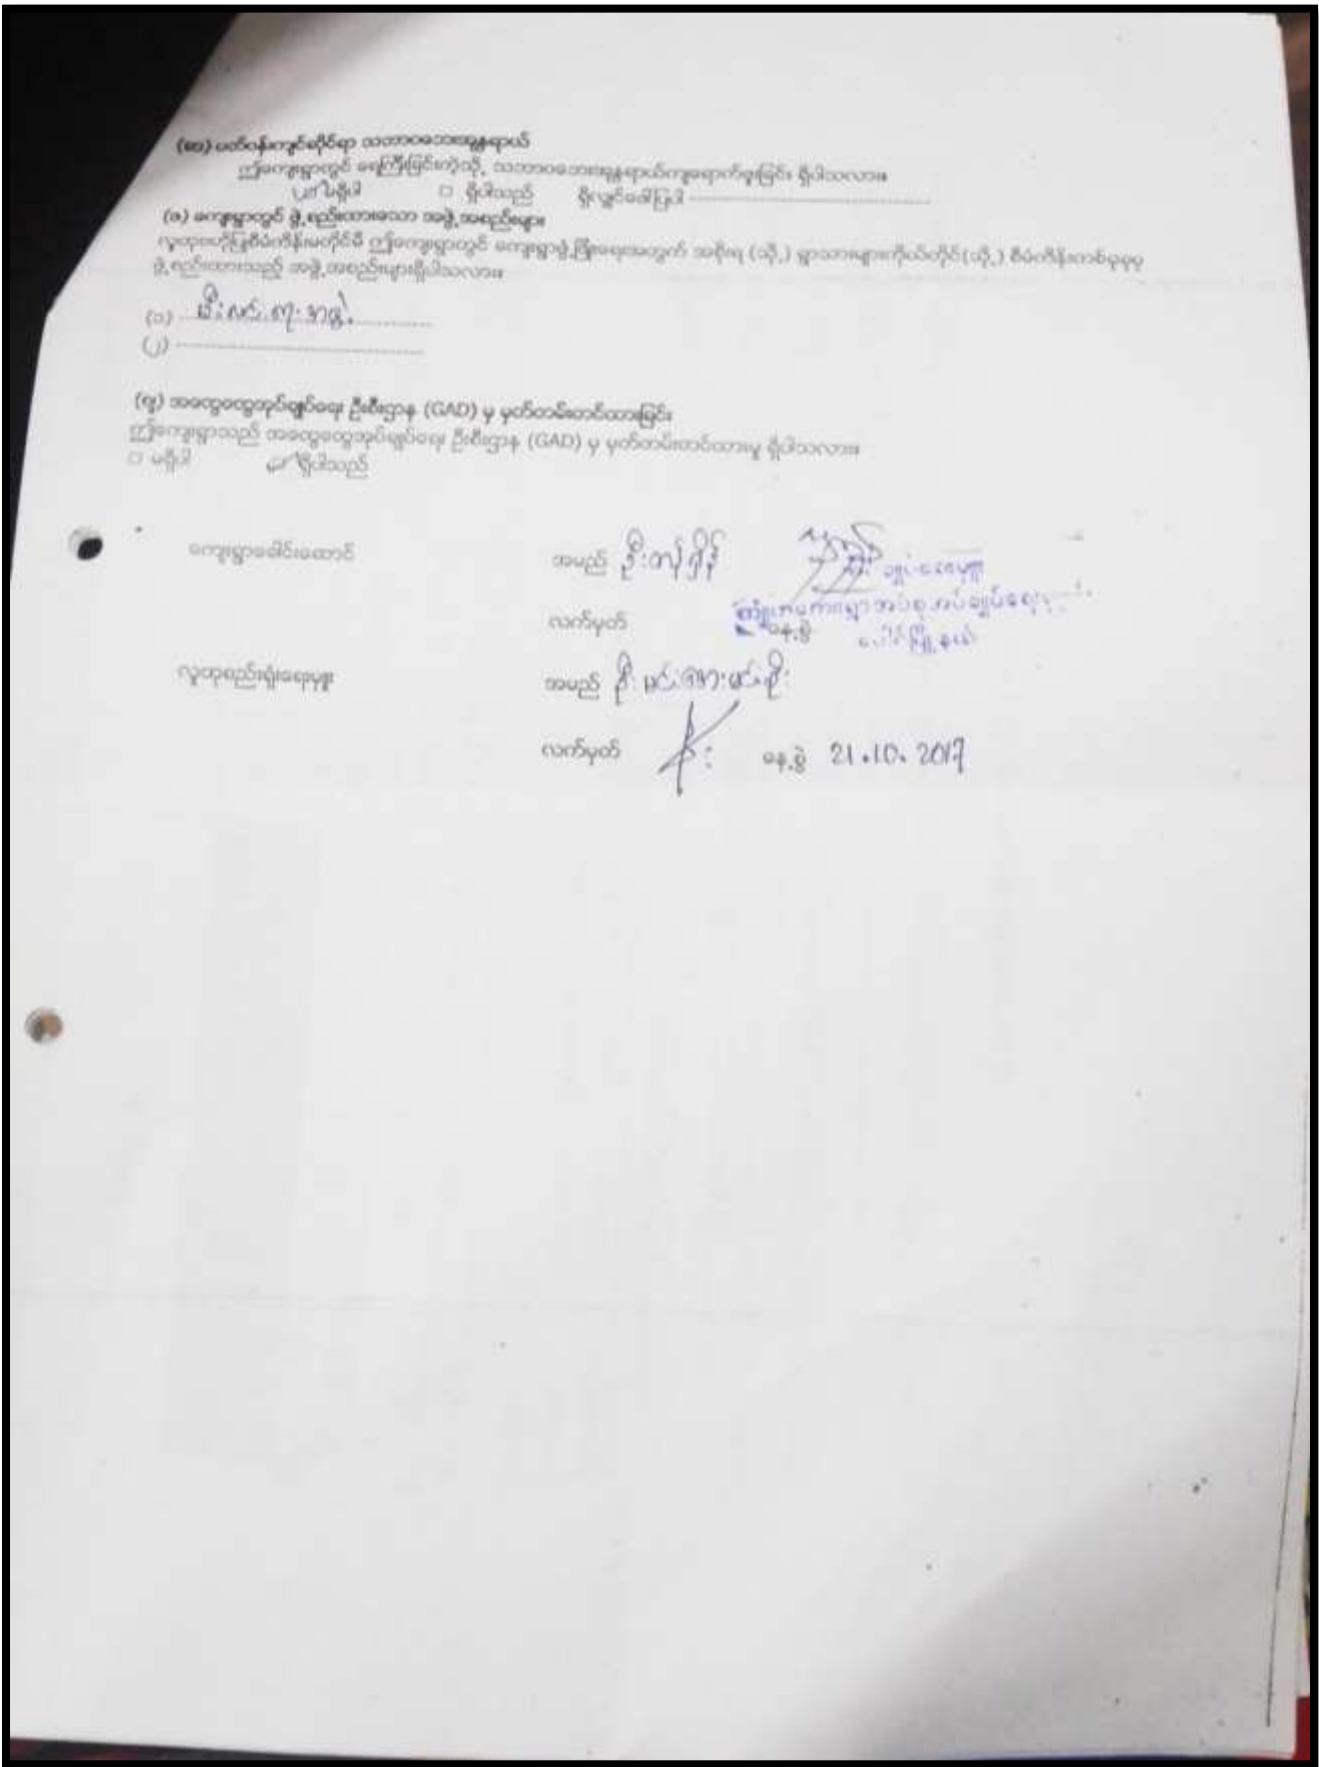 (ဆ) ပတ်ဝန်းကျင်ဆိုင်ရာ သဘာဝဘေးအန္တရာယ်
ဤကျေးရွာတွင် ရေကြီးခြင်းကဲ့သို့ သဘာဝဘေးအန္တရာယ်ကျရောက်ဖူးခြင်း ရှိပါသလား။
မရှိပါ □ ရှိပါသည် ရှိလျှင်ဖော်ပြပါ
(ဇ) ကျေးရွာတွင် ဖွဲ့စည်းထားသော အဖွဲ့အစည်းများ
လူထုဗဟိုပြုစီမံကိန်းမတိုင်မီ ဤကျေးရွာတွင် ကျေးရွာဖွံ့ဖြိုးရေးအတွက် အစိုးရ (သို့) ရွာသားများကိုယ်တိုင်(သို့) စီမံကိန်းတစ်ခုခုမှ
ဖွဲ့စည်းထားသည့် အဖွဲ့အစည်းများရှိပါသလား။
(၁) မီးလင်းရေးအဖွဲ့
(၂)
(ဈ) အထွေထွေအုပ်ချုပ်ရေး ဦးစီးဌာန (GAD) မှ မှတ်တမ်းတင်ထားခြင်း
ဤကျေးရွာသည် အထွေထွေအုပ်ချုပ်ရေး ဦးစီးဌာန (GAD) မှ မှတ်တမ်းတင်ထားမှု ရှိပါသလား။
□ မရှိပါ ရှိပါသည်
ကျေးရွာခေါင်းဆောင် အမည် ဦး
အုပ်ချုပ်ရေးမှူး
လက်မှတ် ကျေးရွာအုပ်စုအုပ်ချုပ်ရေး
နေ့စွဲ ပေါင်မြို့နယ်
လူထုစည်းရုံးရေးမှူး အမည် ဦး
လက်မှတ် နေ့စွဲ 21.10.2017